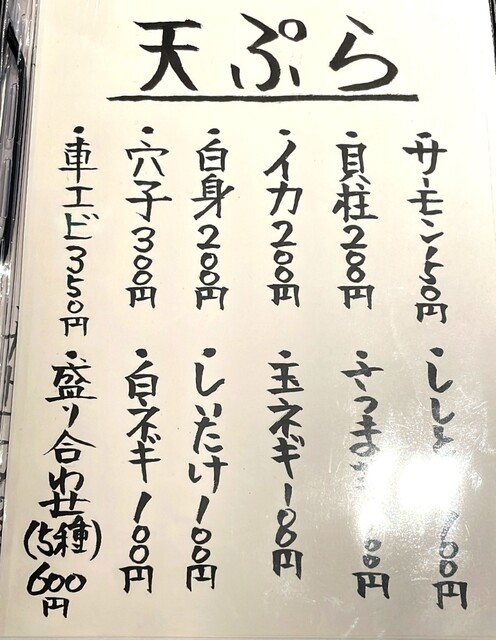 天ぷら
・サーモン150円
・貝柱200円
・イカ200円
・白身200円
・穴子300円
・車エビ350円
・ししと 100円
・さつま 00円
・玉ネギ100円
・しいたけ100円
・白ネギ100円
・盛り合わせ(5種)600円